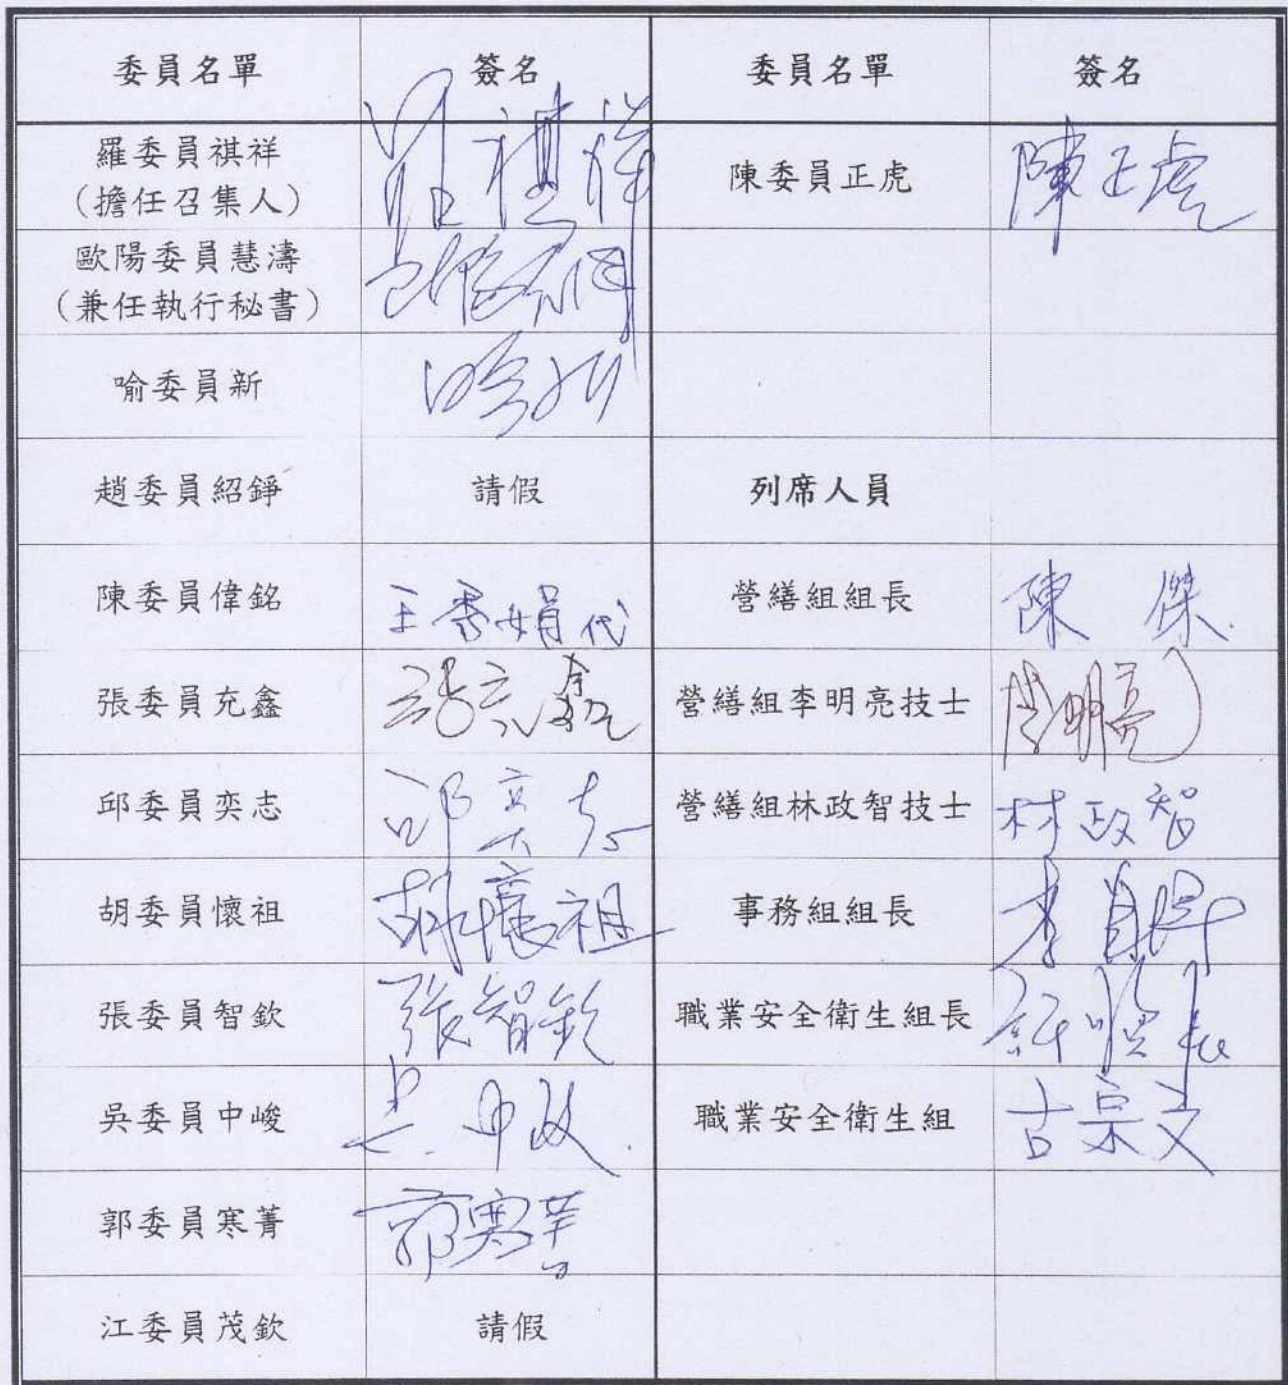 委員名單 簽名 委員名單 簽名
羅委員祺祥
(擔任召集人) 羅祺祥 陳委員正虎 陳正虎
歐陽委員慧濤
(兼任執行秘書)
喻委員新 喻新
趙委員紹錚 請假 列席人員
陳委員偉銘 王秀娟代 營繕組組長 陳傑
張委員充鑫 張充鑫 營繕組李明亮技士 李明亮
邱委員奕志 邱奕志 營繕組林政智技士 林政智
胡委員懷祖 胡懷祖 事務組組長
張委員智欽 張智欽 職業安全衛生組長
吳委員中峻 吳中峻 職業安全衛生組 古宗文
郭委員寒菁 郭寒菁
江委員茂欽 請假